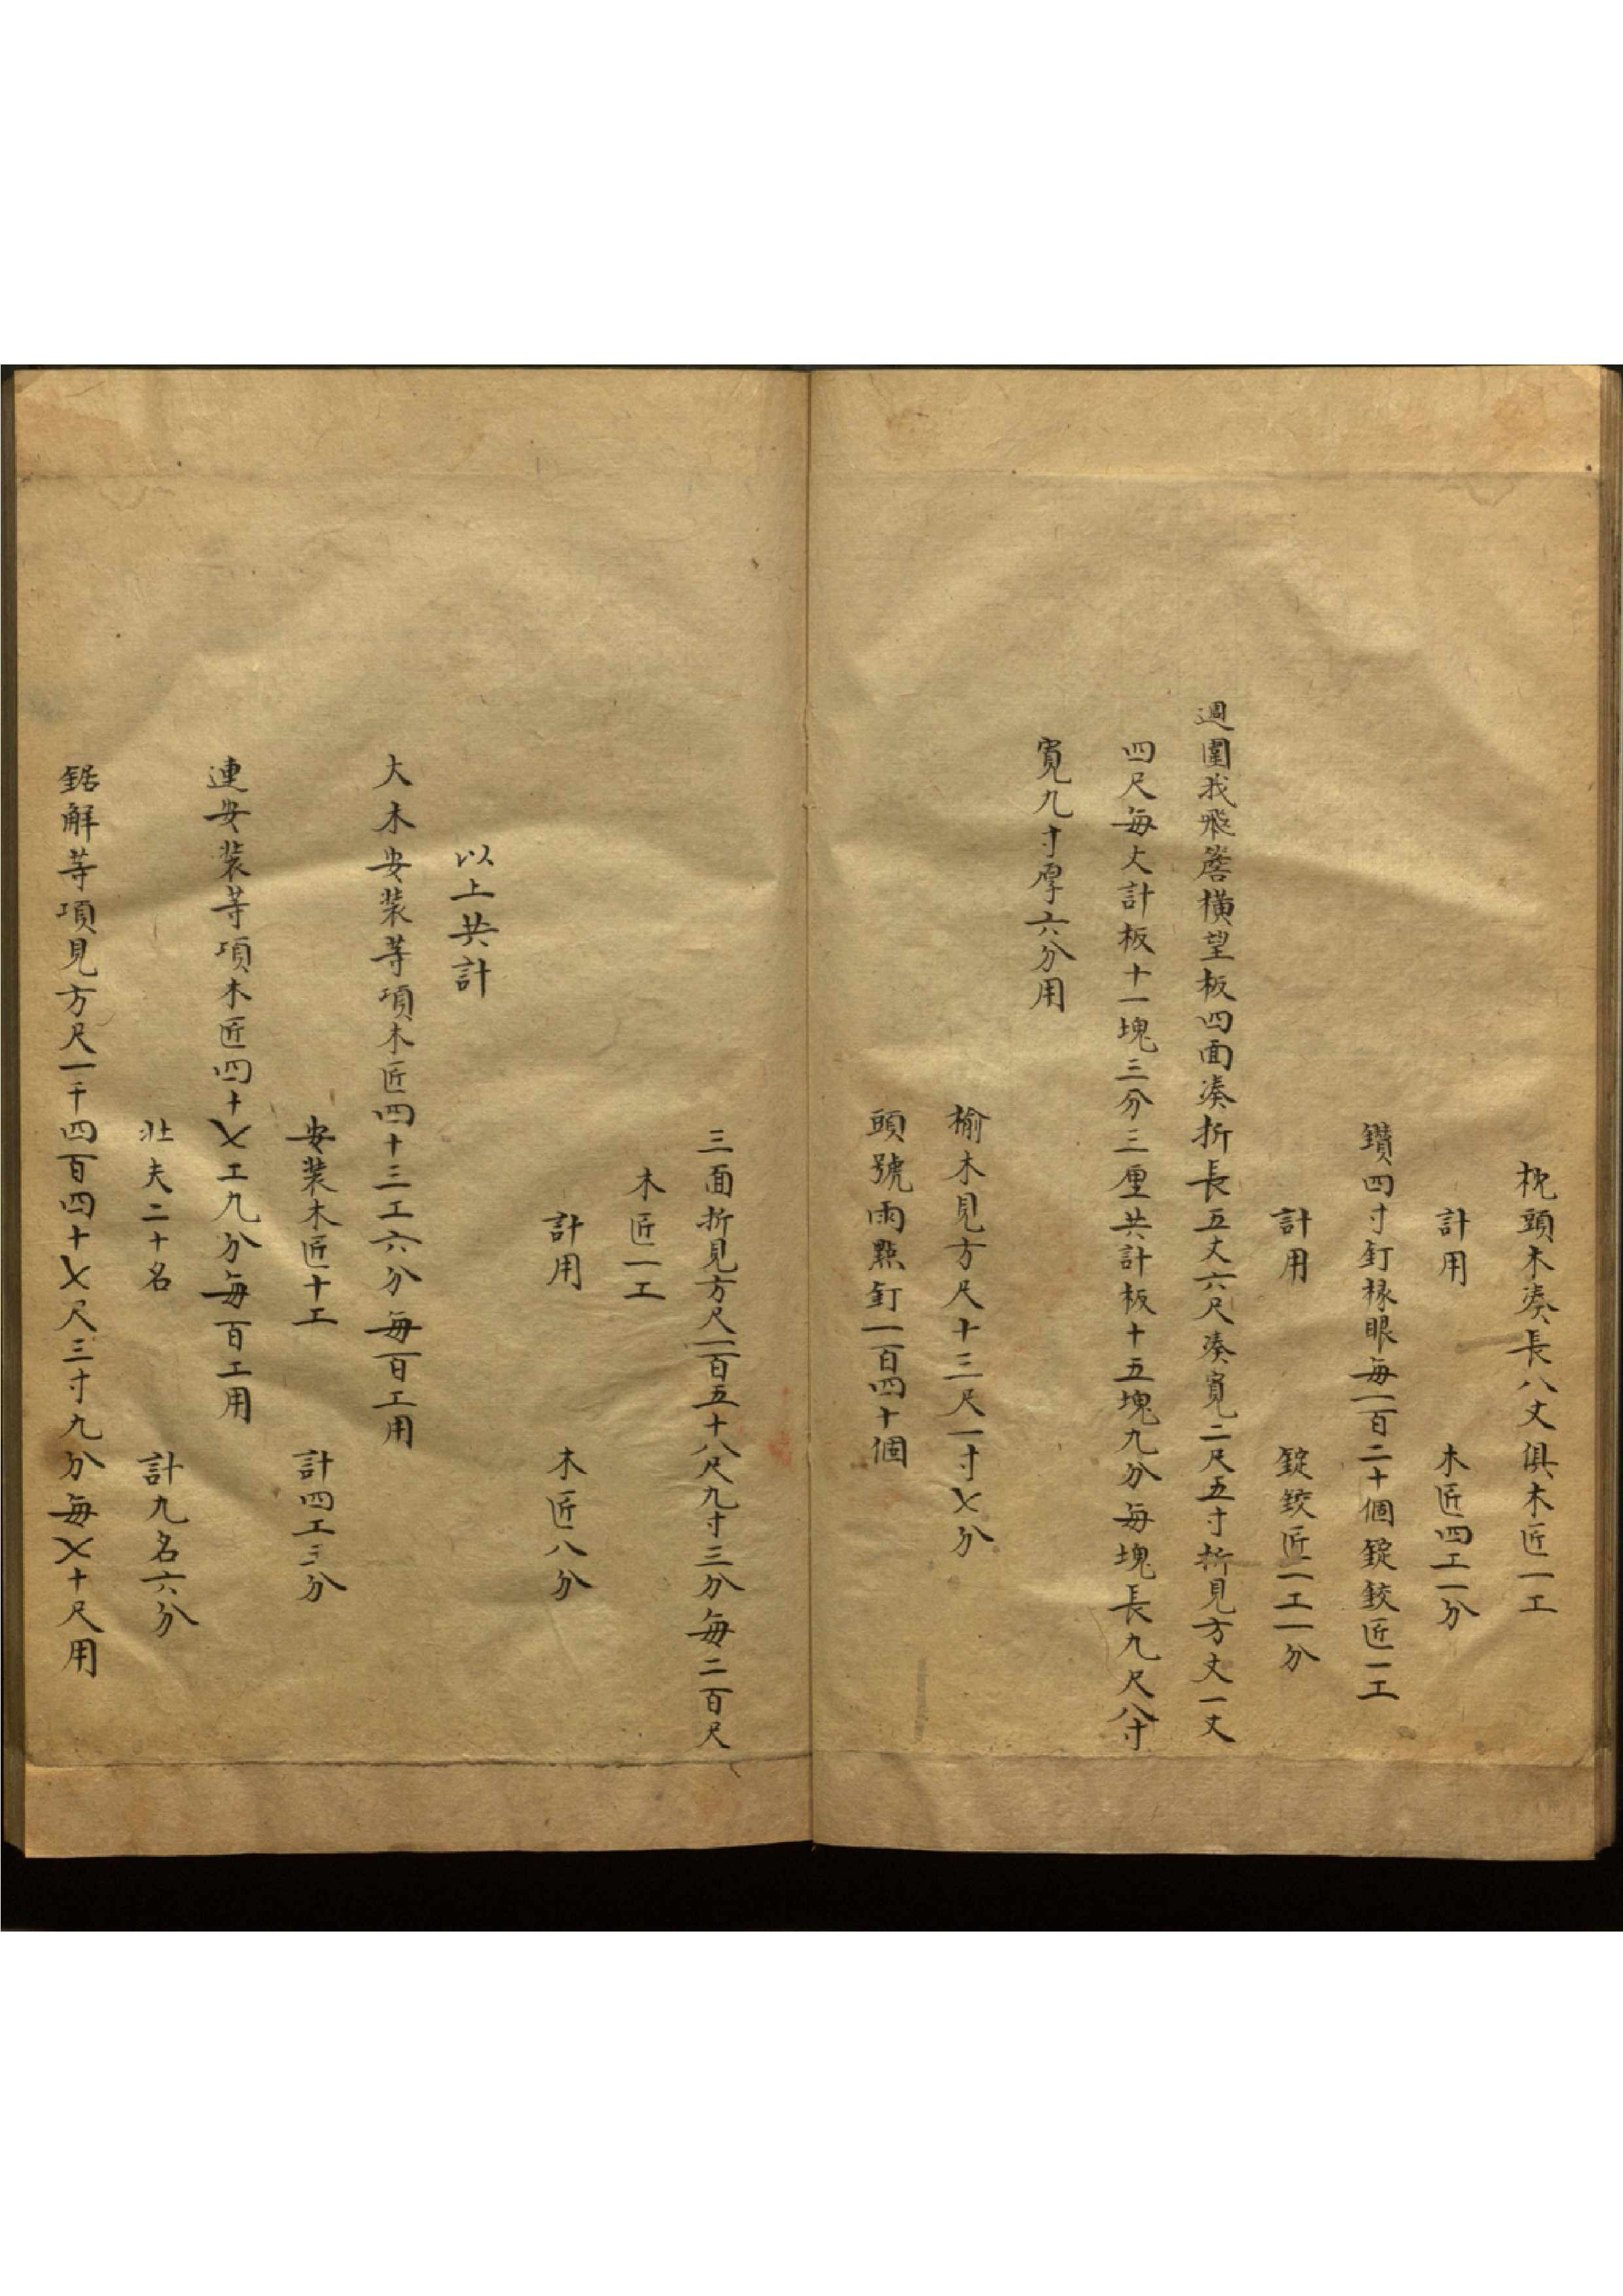 枕頭木凑長八丈俱木匠一工
計用　木匠四工一分
鑽四寸釘椽眼每一百二十個錠鉸匠一工
計用　錠鉸匠一工一分
週圍我飛簷橫望板四面凑折長五丈六尺凑寬二尺五寸折見方丈一丈
四尺每丈計板十一塊三分三厘共計板十五塊九分每塊長九尺八寸
寬九寸厚六分用
榆木見方尺十三尺一寸〤分
頭號雨點釘一百四十個
三面折見方尺一百五十八尺九寸三分每二百尺
木匠一工
計用　木匠八分
以上共計
大木安装等項木匠四十三工六分每百工用
安装木匠十工　計四工三分
連安装等項木匠四十〤工九分每百工用
壯夫二十名　計九名六分
鋸解等項見方尺一千四百四十〤尺三寸九分每〤十尺用